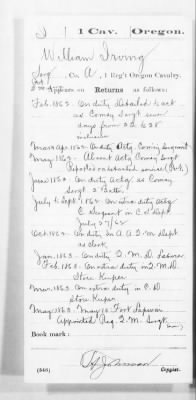 I 1 Cav. Oregon.
William Irving
Sergt., Co. A, 1 Reg't Oregon Cavalry.
Appears on Returns as follows:
Feb. 1862. On duty Detailed to act
as Comsy Sergt
days from 22 to 28
inclusive
Mar & Apr 1862. On duty Actg Comsy Sergeant
May 1862. Absent Actg Comsy Sergt
June 1862. On duty Actg as Comsy
Sergt 2 Batln.
July & Sept 1862. On extra duty actg
C. Sergeant in C. S. Dept
July 27/62
Oct. 1862. On duty in A. Q. M. Dept
as clerk
Jan. 1863. On duty Q. M. D. Laborer
Feb. 1863. On extra duty in Q. M. D.
Store Keeper
Mar. 1863. On extra duty in C. D.
Store Keeper
May 1863. May 10. Fort Lapwai
Appointed Reg. Q. M. Sergt.
Book mark:
Johnson
(546) Copyist.